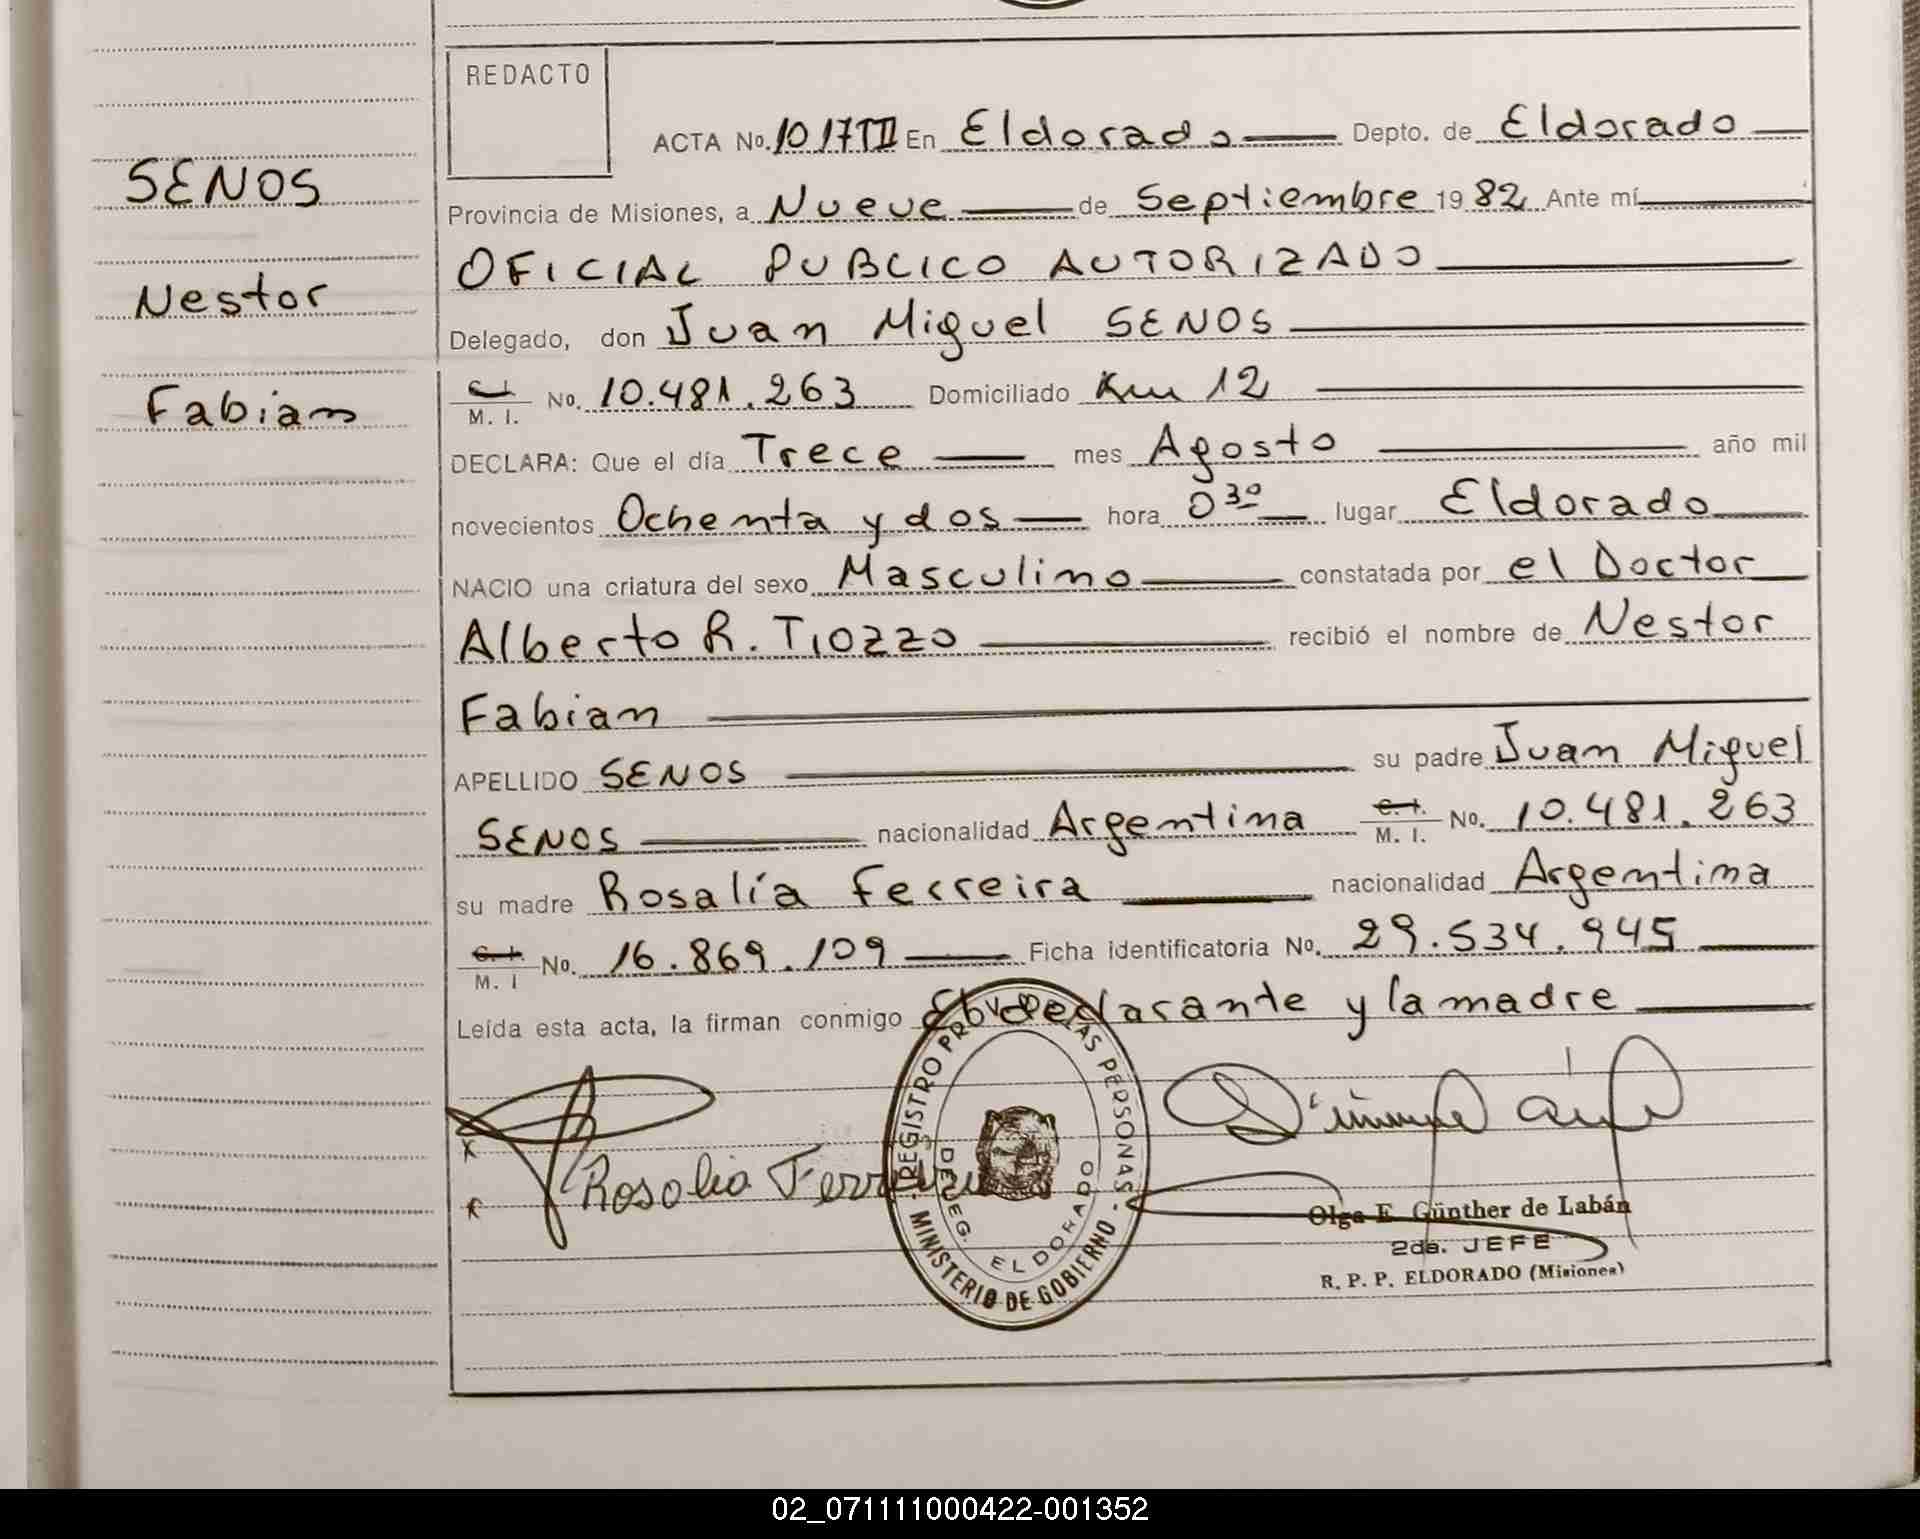 SENOS
Nestor
Fabian
REDACTO
ACTA No. 1017TII En Eldorado Depto. de Eldorado
Provincia de Misiones, a Nueve de Septiembre 1982 Ante mí
OFICIAL PUBLICO AUTORIZADO
Delegado, don Juan Miguel SENOS
C.I. M. I. No. 10.481.263 Domiciliado Km 12
DECLARA: Que el día Trece mes Agosto año mil
novecientos Ochenta y dos hora 0 30 lugar Eldorado
NACIO una criatura del sexo Masculino constatada por el Doctor
Alberto R. Tiozzo recibió el nombre de Nestor
Fabian
APELLIDO SENOS su padre Juan Miguel
SENOS nacionalidad Argentina C.I. M. I. No. 10.481.263
su madre Rosalía Ferreira nacionalidad Argentina
C.I. M. I No. 16.869.109 Ficha identificatoria No. 29.534.945
Leída esta acta, la firman conmigo declarante y la madre
REGISTRO LAS PERSONAS
MINISTERIO DE GOBIERNO
DELEG. ELDORADO
Rosalia
Olga E. Günther de Labán
2da. JEFE
R. P. P. ELDORADO (Misiones)
02_071111000422-001352